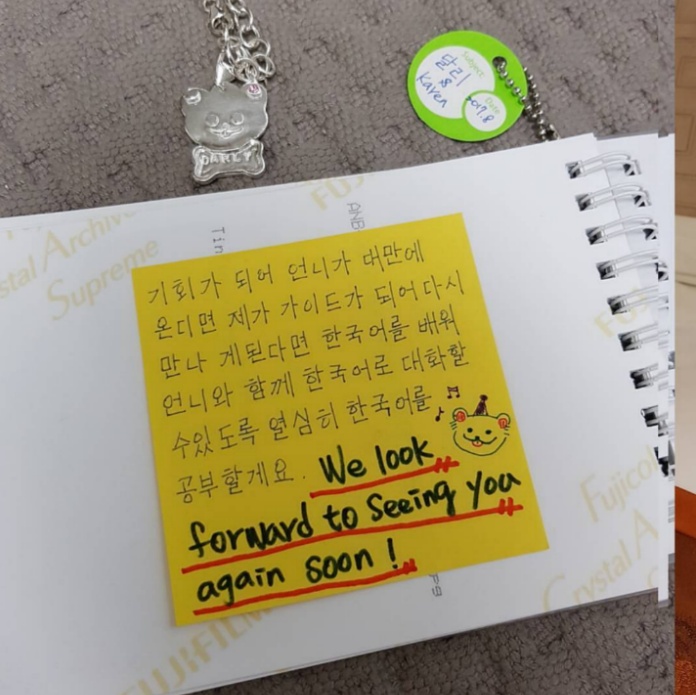 DARLY
Subject
달리
&
Karen
Date
2017.8
Crystal Archive
Supreme
FUJI
기회가 되어 언니가 대만에
온디면 제가 가이드가 되어 다시
만나 게된다면 한국어를 배워
언니와 함께 한국어로 대화할
수있도록 열심히 한국어를
공부할게요. We look
forward to Seeing you
again soon!
Fujicol
Crystal A
FUJIFILM